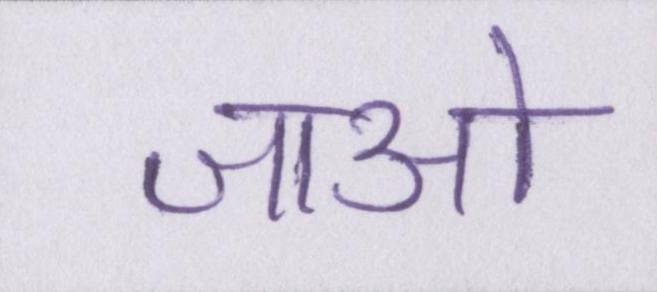 जाओ